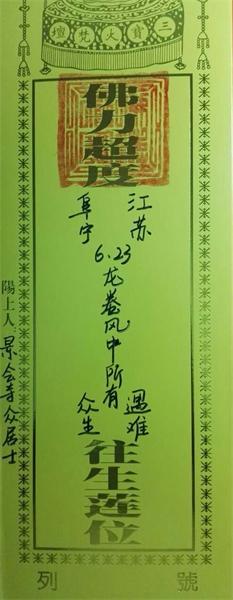 三寶大梵壇
佛力超度
江苏
阜宁
6.23龙卷风中所有
遇难
众生
往生莲位
陽上人:景会寺众居士
列號